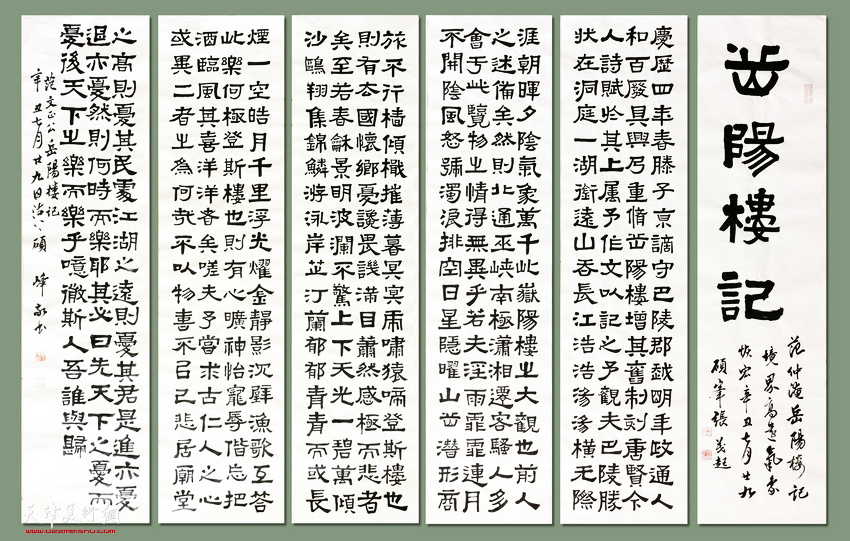 岳陽樓記
范仲淹岳陽樓記
境界高遠氣象
恢宏辛丑七月廿九
碩峯張茂起
慶歷四年春滕子京謫守巴陵郡越明年政通人
和百廢具興乃重脩岳陽樓增其舊制刻唐賢今
人詩賦於其上屬予作文以記之予觀夫巴陵勝
狀在洞庭一湖銜遠山吞長江浩浩湯湯橫无際
涯朝暉夕陰氣象萬千此嶽陽樓之大觀也前人
之述備矣然則北通巫峽南極瀟湘遷客騷人多
會于此覽物之情得無異乎若夫淫雨霏霏連月
不開陰風怒號濁浪排空日星隱曜山岳潛形商
旅不行檣傾檝摧薄暮冥冥虎嘯猿啼登斯樓也
則有去國懷鄉憂讒畏譏滿目蕭然感極而悲者
矣至若春龢景明波瀾不驚上下天光一碧萬傾
沙鷗翔集錦鱗游泳岸芷汀蘭郁郁青青而或長
煙一空皓月千里浮光耀金靜影沉璧漁歌互答
此樂何極登斯樓也則有心曠神怡寵辱偕忘把
酒臨風其喜洋洋者矣嗟夫予嘗求古仁人之心
或異二者之為何哉不以物喜不以己悲居廟堂
之高則憂其民處江湖之遠則憂其君是進亦憂
退亦憂然則何時而樂耶其必曰先天下之憂而
憂後天下之樂而樂乎噫微斯人吾誰與歸
范文正公岳陽樓記
辛丑七月廿九日 碩峰敬書
天津美術網